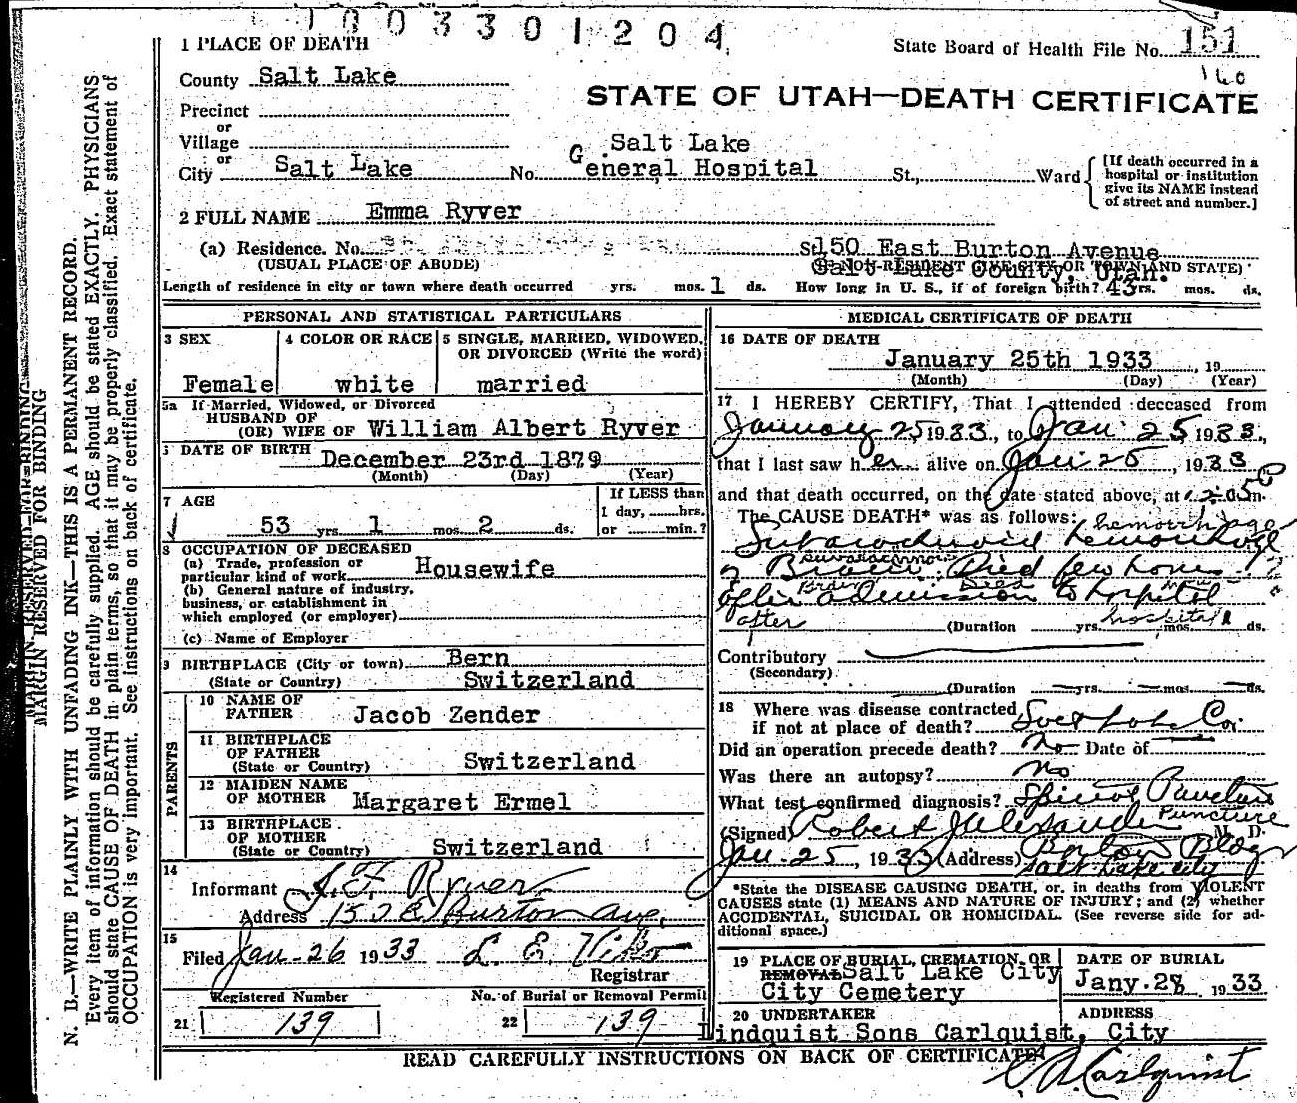 1003301204
1 PLACE OF DEATH
State Board of Health File No. 151
160
County Salt Lake
STATE OF UTAH—DEATH CERTIFICATE
Precinct
or
Village
or
City Salt Lake No. Salt Lake General Hospital St., Ward
[If death occurred in a hospital or institution give its NAME instead of street and number.]
2 FULL NAME Emma Ryver
(a) Residence. No. St. 150 East Burton Avenue
(USUAL PLACE OF ABODE) Salt Lake County, Utah.
(IF NON-RESIDENT GIVE CITY OR TOWN AND STATE)
Length of residence in city or town where death occurred yrs. mos. 1 ds. How long in U. S., if of foreign birth? 43 yrs. mos. ds.
PERSONAL AND STATISTICAL PARTICULARS
3 SEX
Female
4 COLOR OR RACE
white
5 SINGLE, MARRIED, WIDOWED, OR DIVORCED (Write the word)
married
5a If Married, Widowed, or Divorced
HUSBAND OF
(OR) WIFE OF William Albert Ryver
DATE OF BIRTH December 23rd 1879
(Month) (Day) (Year)
7 AGE
53 yrs. 1 mos. 2 ds.
If LESS than
1 day, hrs.
or min.?
8 OCCUPATION OF DECEASED
(a) Trade, profession or
particular kind of work Housewife
(b) General nature of industry,
business, or establishment in
which employed (or employer)
(c) Name of Employer
9 BIRTHPLACE (City or town) Bern
(State or Country) Switzerland
PARENTS
10 NAME OF
FATHER Jacob Zender
11 BIRTHPLACE
OF FATHER
(State or Country) Switzerland
12 MAIDEN NAME
OF MOTHER Margaret Ermel
13 BIRTHPLACE
OF MOTHER
(State or Country) Switzerland
14
Informant Ryver
Address 150 E Burton Ave,
15
Filed Jan-26 1933 L. E.
Registrar
Registered Number
21 139
No. of Burial or Removal Permit
22 139
MEDICAL CERTIFICATE OF DEATH
16 DATE OF DEATH
January 25th 1933, 19
(Month) (Day) (Year)
17 I HEREBY CERTIFY, That I attended deceased from
January 25 1933, to Jan 25 1933,
that I last saw her alive on Jan 25, 1933
and that death occurred, on the date stated above, at m.
The CAUSE DEATH* was as follows:
hemorrhage
Subarachnoid hemorrhage
of Brain. Died few hours
Brain Died
after admission to hospital
after hospital
(Duration yrs. mos. ds.
Contributory
(Secondary)
(Duration yrs. mos. ds.
18 Where was disease contracted
if not at place of death? Salt Lake Co.
Did an operation precede death? no Date of
Was there an autopsy? no
What test confirmed diagnosis? Spinal Puncture
Puncture
(Signed) Robert J Alexander M. D.
Jan. 25, 1933 (Address) Boston Bldg
Salt Lake City
*State the DISEASE CAUSING DEATH, or, in deaths from VIOLENT
CAUSES state (1) MEANS AND NATURE OF INJURY; and (2) whether
ACCIDENTAL, SUICIDAL OR HOMICIDAL. (See reverse side for additional space.)
19 PLACE OF BURIAL, CREMATION, OR
REMOVAL Salt Lake City
City Cemetery
DATE OF BURIAL
Jany. 28, 1933
20 UNDERTAKER
Lindquist Sons Carlquist,
ADDRESS
City
READ CAREFULLY INSTRUCTIONS ON BACK OF CERTIFICATE
Carlquist
MARGIN RESERVED FOR BINDING
N. B.—WRITE PLAINLY WITH UNFADING INK—THIS IS A PERMANENT RECORD.
Every item of information should be carefully supplied. AGE should be stated EXACTLY. PHYSICIANS
should state CAUSE OF DEATH in plain terms, so that it may be properly classified. Exact statement of
OCCUPATION is very important. See instructions on back of certificate.